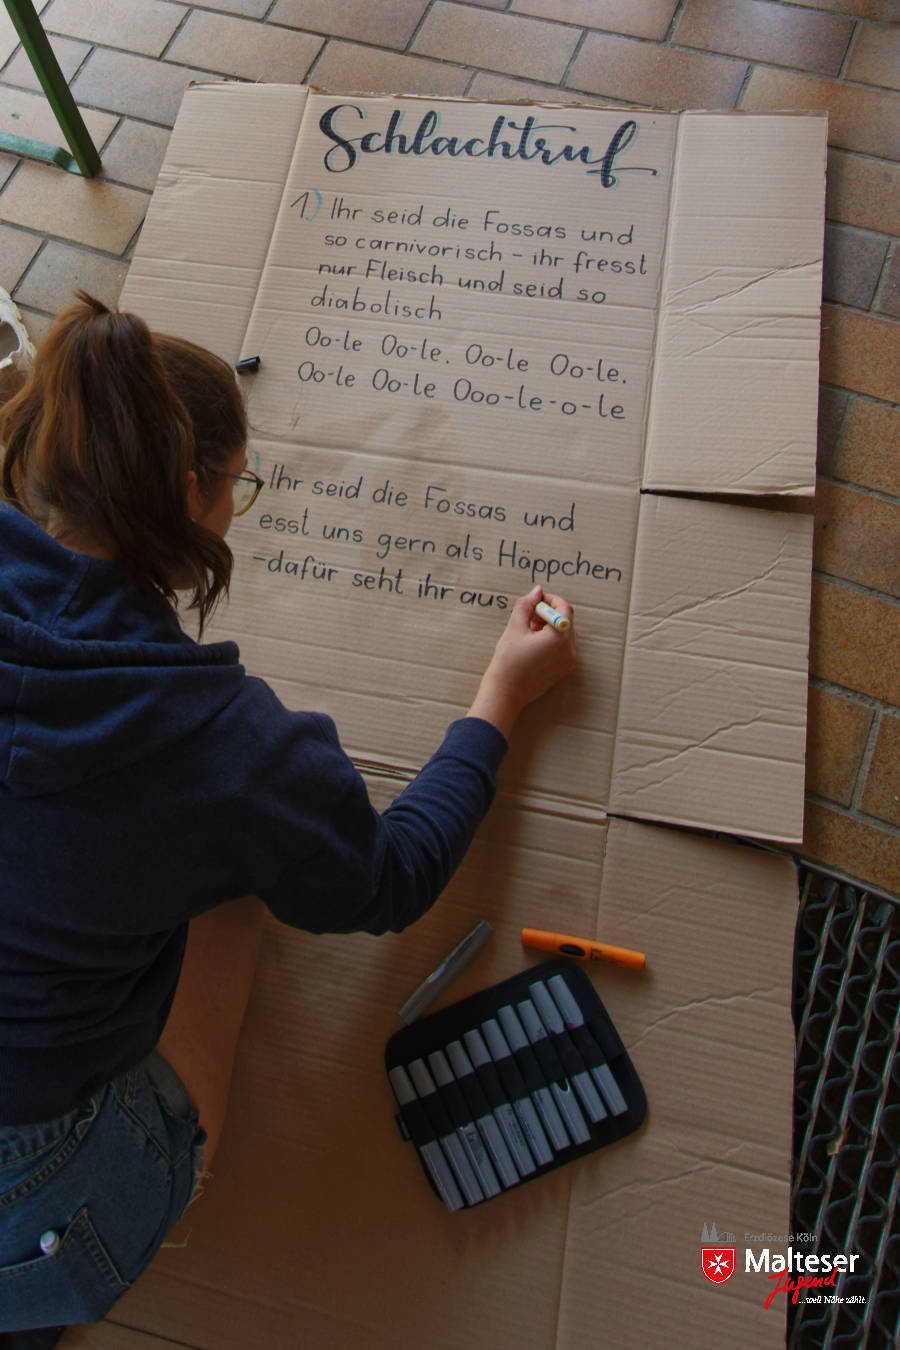 Schlachtruf
1) Ihr seid die Fossas und
so carnivorisch - ihr fresst
nur Fleisch und seid so
diabolisch
Oo-le Oo-le. Oo-le Oo-le.
Oo-le Oo-le Ooo-le-o-le
) Ihr seid die Fossas und
esst uns gern als Häppchen
-dafür seht ihr aus
Erzdiözese Köln
Malteser
Jugend
...weil Nähe zählt.